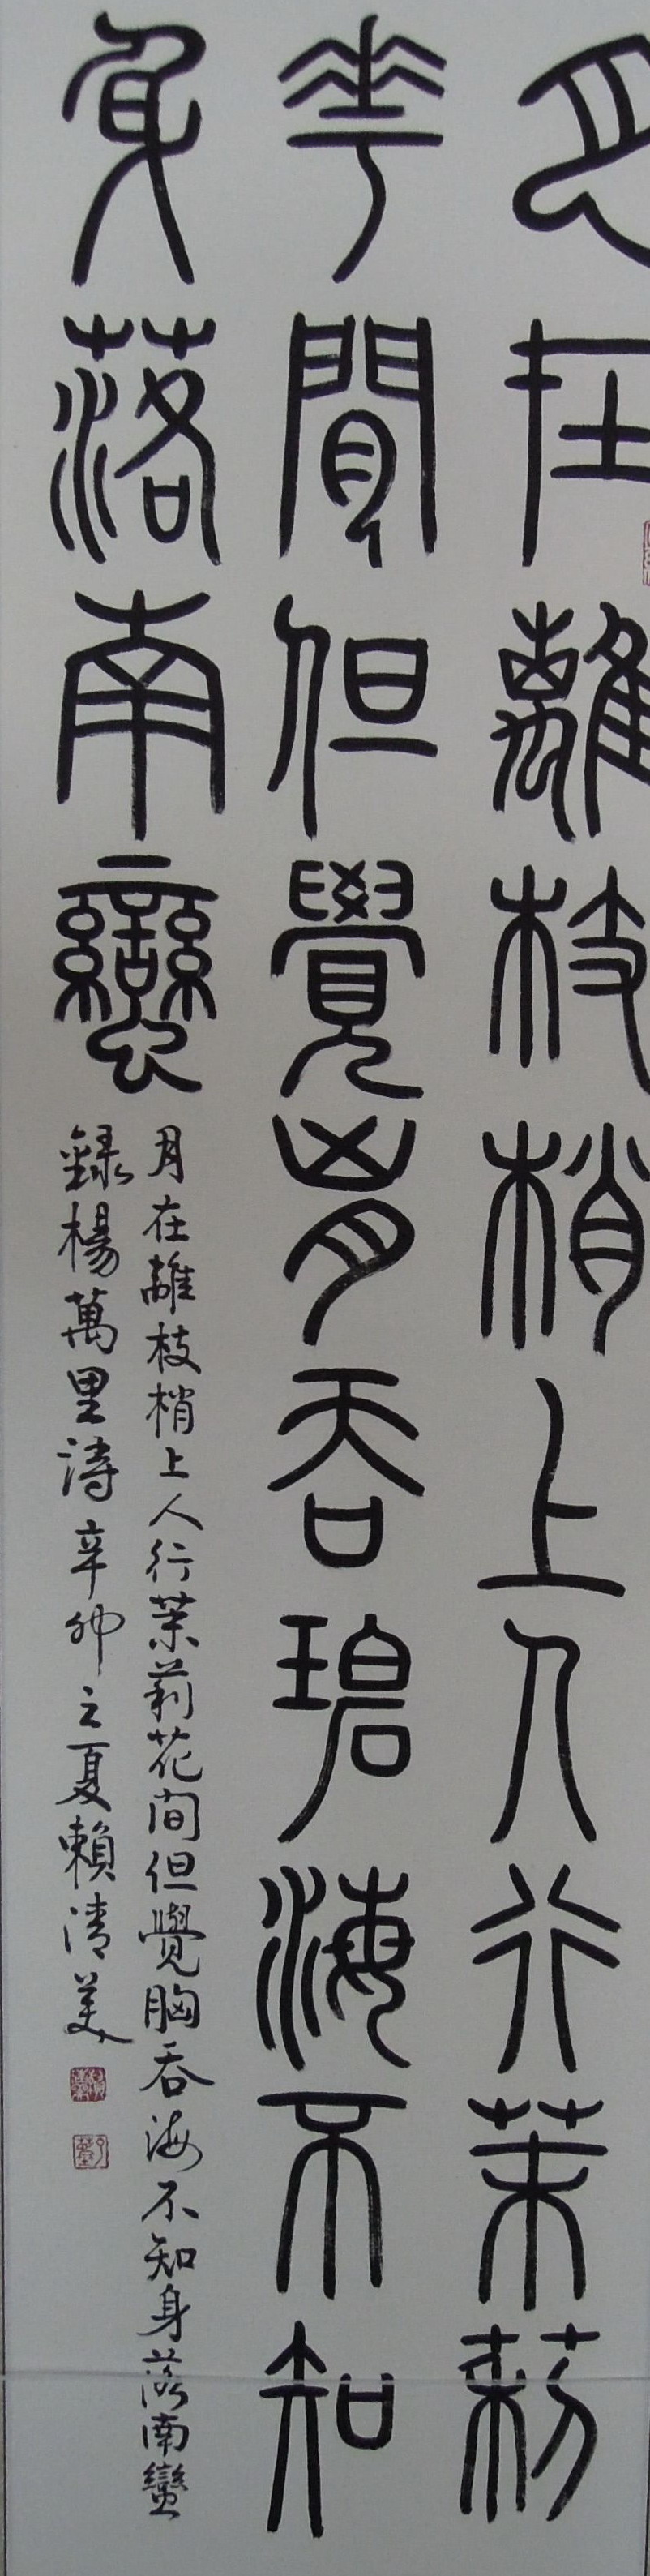 月在離枝梢上人行茉莉
華間但覺匈吞碧海不知
身落南蠻
月在離枝梢上人行茉莉花间但覺胸吞海不知身落南蠻
錄楊萬里詩辛卯之夏賴清美